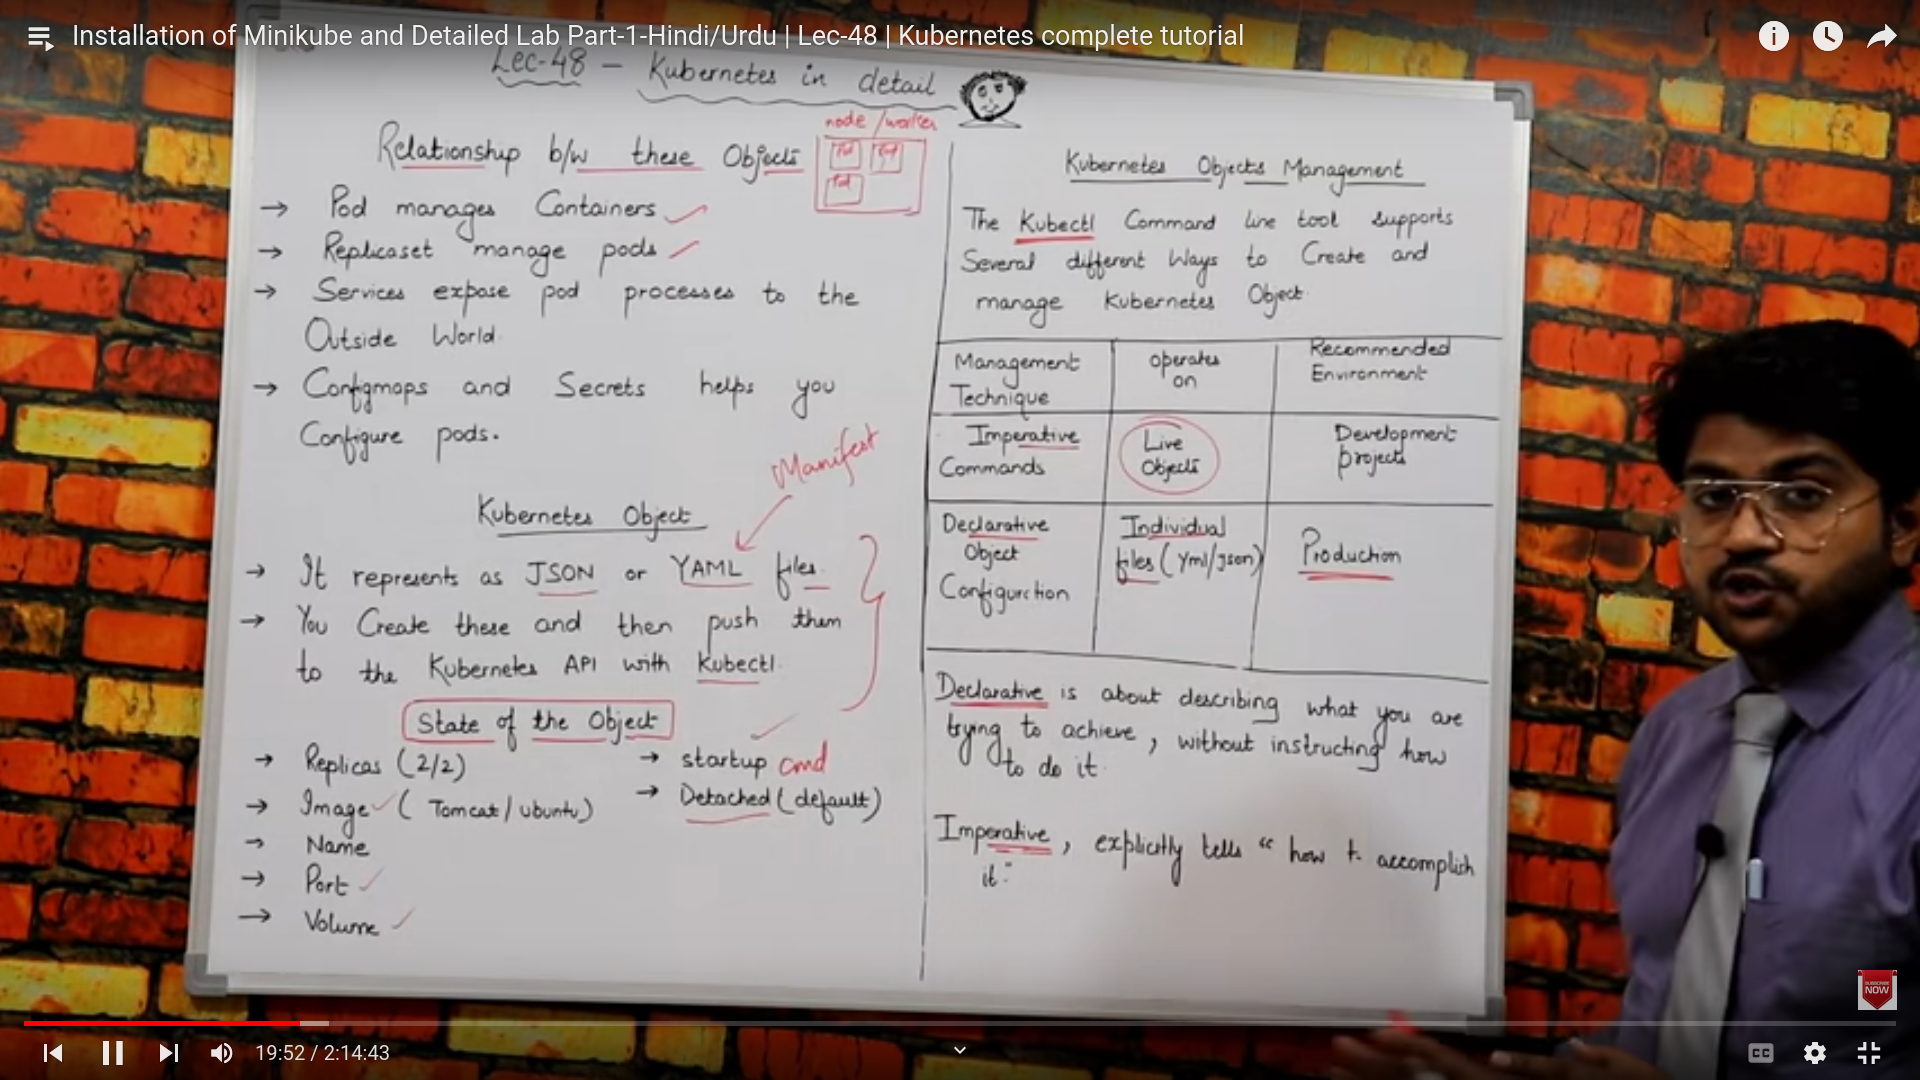 Installation of Minikube and Detailed Lab Part-1-Hindi/Urdu | Lec-48 | Kubernetes complete tutorial
Lec-48 - Kubernetes in detail
Relationship b/w these Objects
node / worker
Pod Pod
Pod
→ Pod manages Containers
→ Replicaset manage pods
→ Services expose pod processes to the
Outside World.
→ Confgmaps and Secrets helps you
Configure pods.
Manifest
Kubernetes Object
→ It represents as JSON or YAML files.
→ You Create these and then push them
to the Kubernetes API with Kubectl.
State of the Object
→ Replicas (2/2)
→ Image (Tomcat/ubuntu)
→ Name
→ Port
→ Volume
→ startup cmd
→ Detached (default)
Kubernetes Objects Management
The Kubectl Command line tool supports
Several different Ways to Create and
manage Kubernetes Object.
Management Technique
operates on
Recommended Environment
Imperative Commands
Live Objects
Development projects
Declarative Object Configurction
Individual files (Yml/Json)
Production
Declarative is about describing what you are
trying to achieve, without instructing how
to do it.
Imperative, explicitly tells "how to accomplish
it."
SUBSCRIBE
NOW
19:52 / 2:14:43
CC